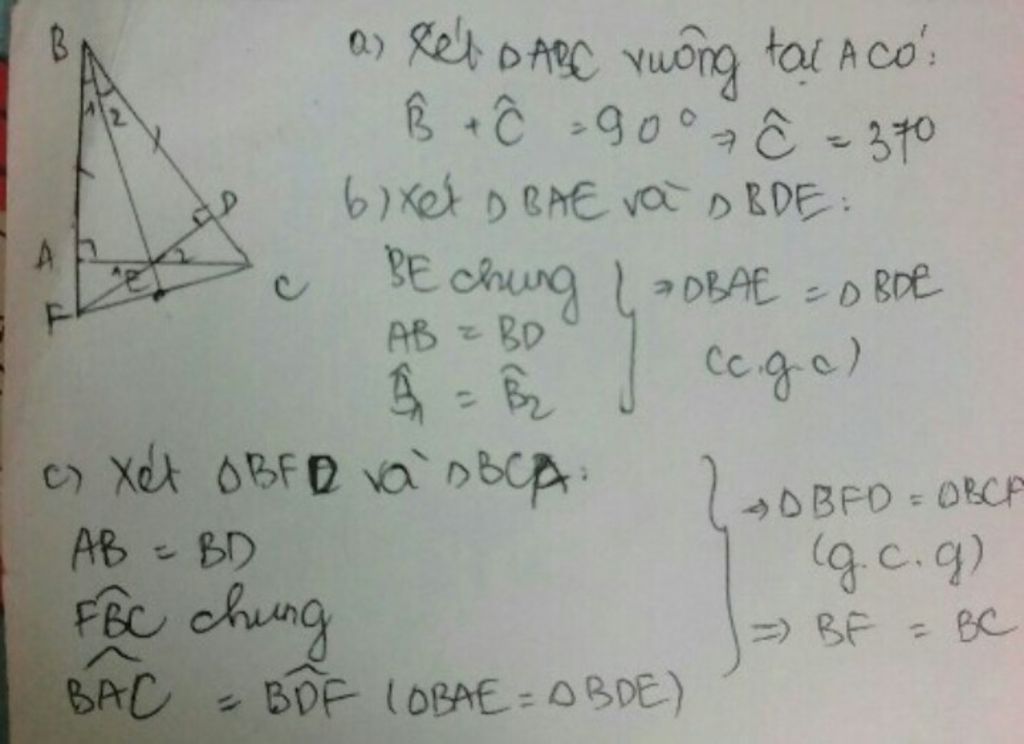 B
1 2
D
A
1 E 2
C
F
a) Xét ΔABC vuông tại A có:
B̂ + Ĉ = 90° ⇒ Ĉ = 370
b) Xét ΔBAE và ΔBDE:
BE chung
AB = BD
B̂1 = B̂2
} ⇒ ΔBAE = ΔBDE
(c.g.c)
c) Xét ΔBFD và ΔBCA:
AB = BD
FBC chung
BAC = BDF (ΔBAE = ΔBDE)
} ⇒ ΔBFD = ΔBCA
(g.c.g)
⇒ BF = BC